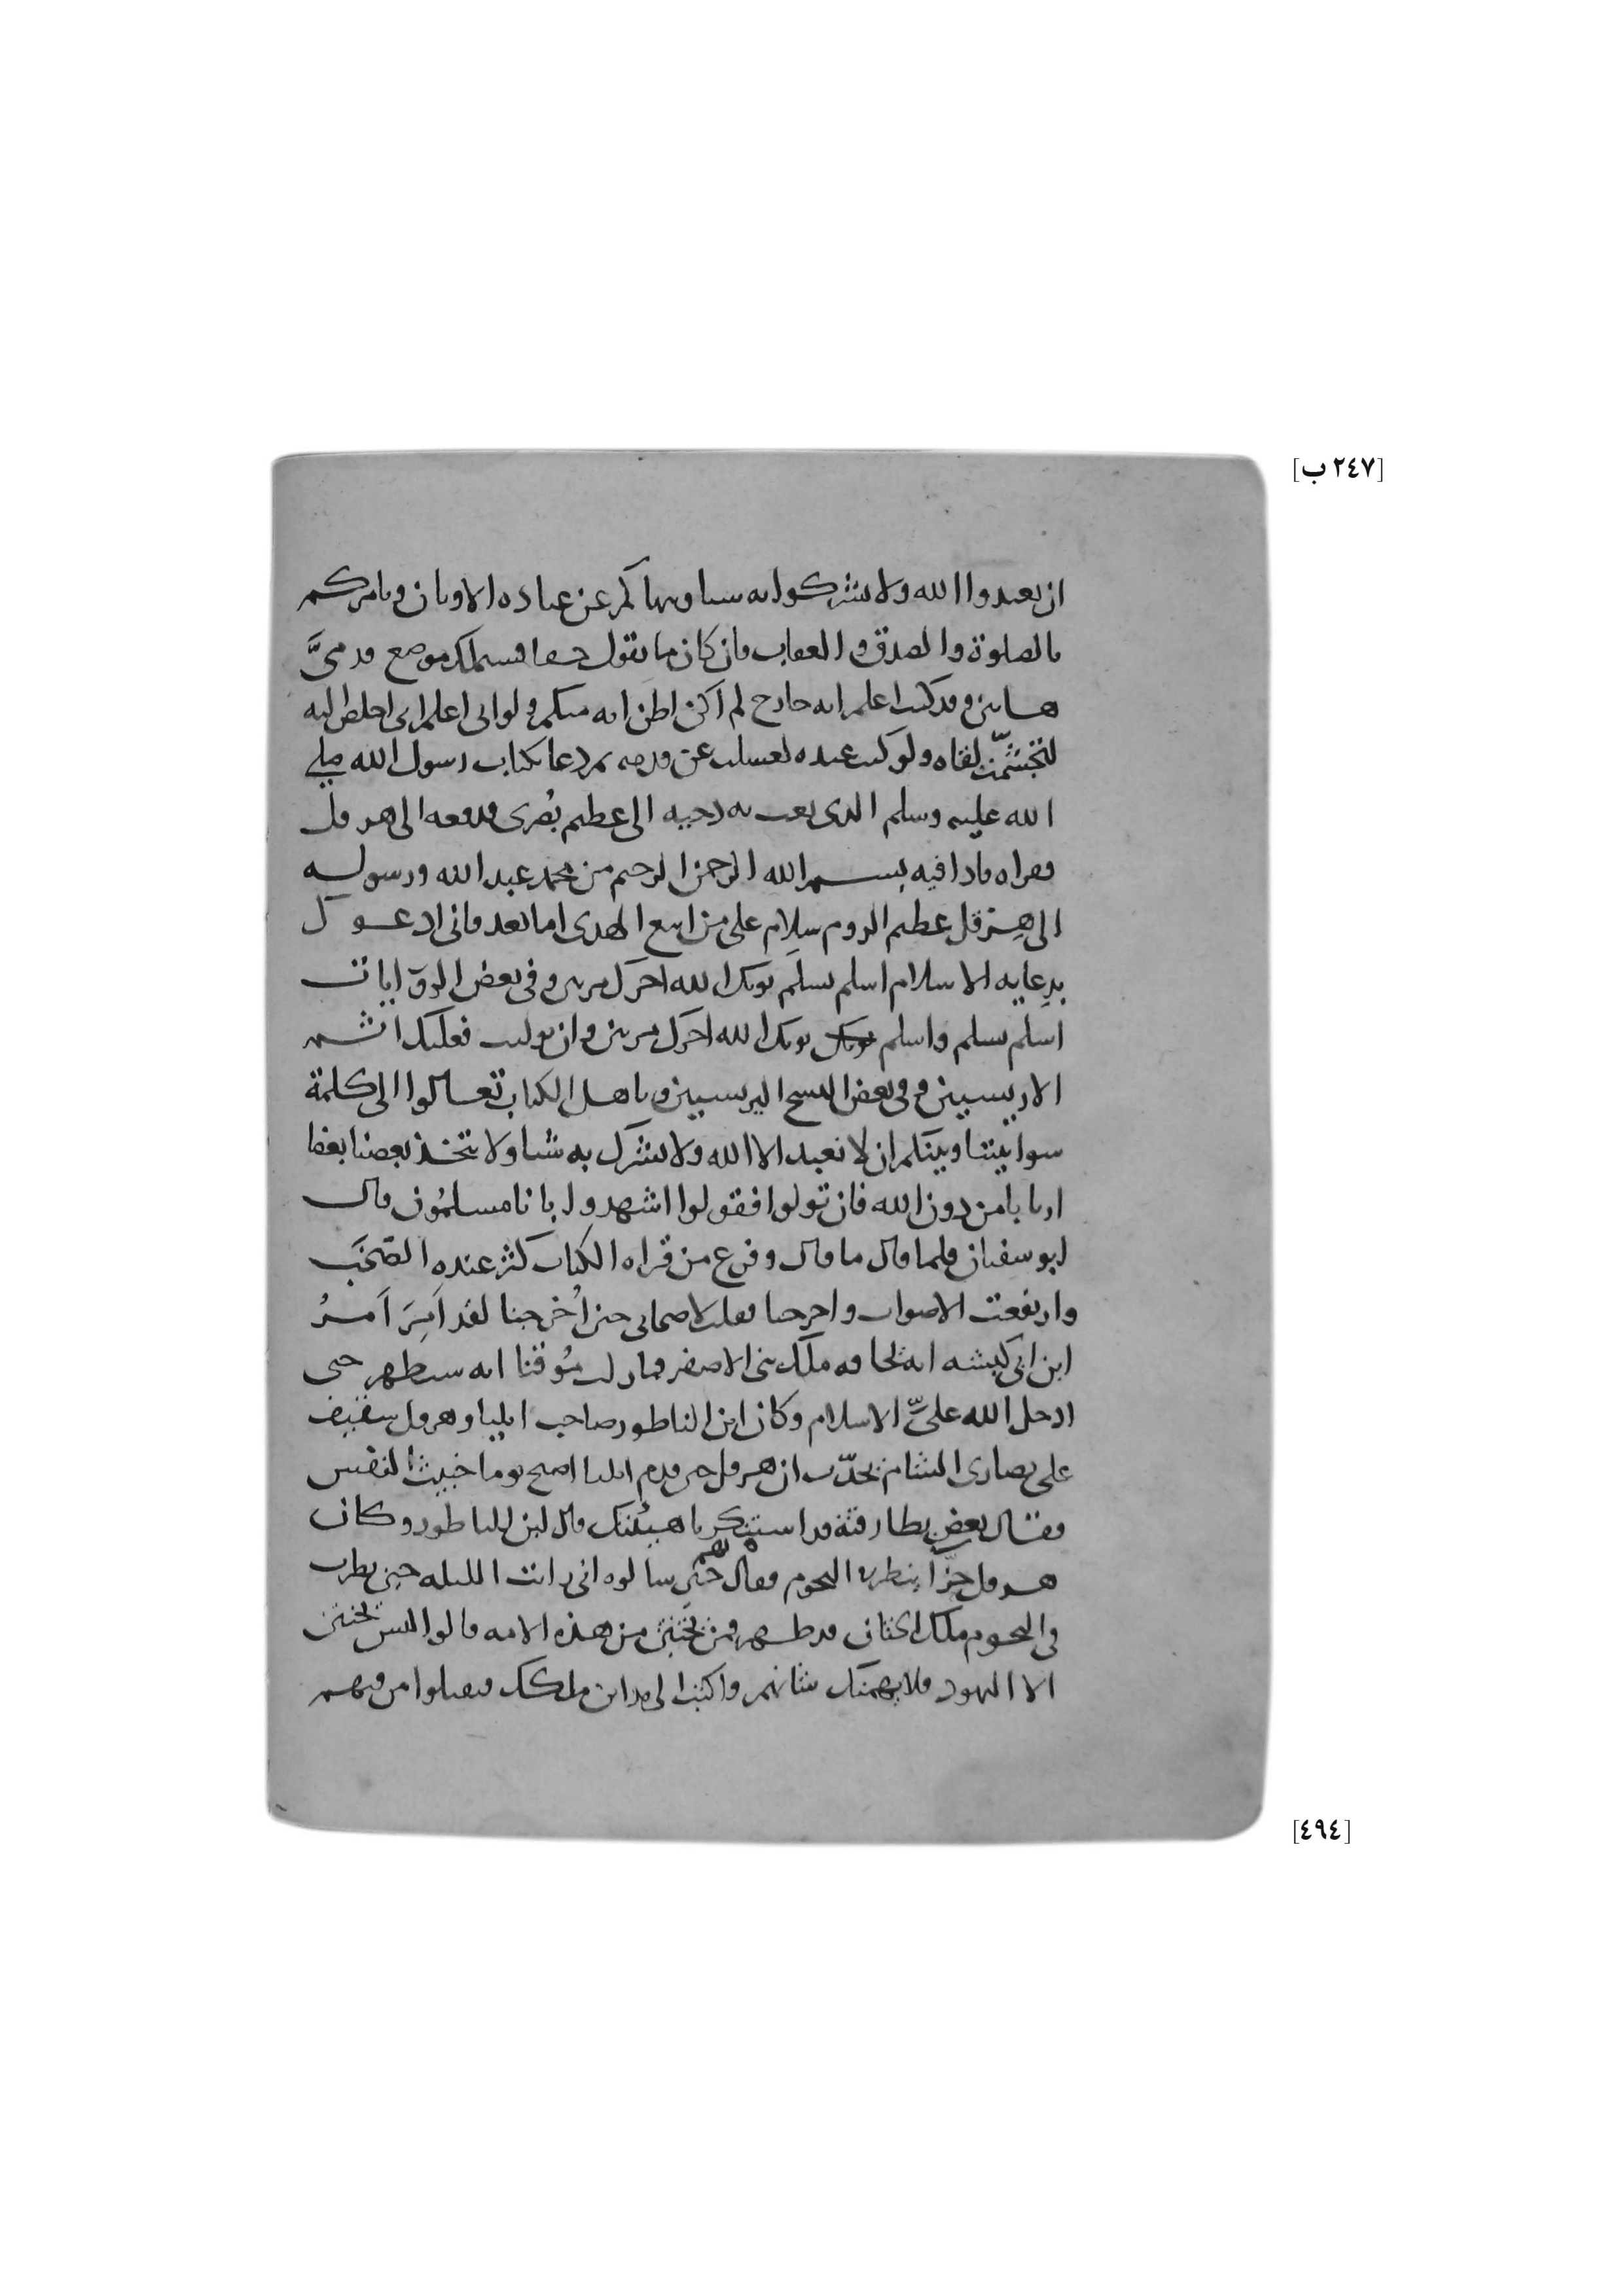 [٢٤٧ ب]
ان تعبدوا الله ولا تشركوا به شيا وينهاكم عن عباده الاوثان ويامركم
بالصلوة والصدق والعفاف فان كان ما تقول حقا فسيملك موضع قدميَّ
هاتين وقد كنت اعلم انه خارج لم اكن اظن انه منكم ولو اني اعلم اني اخلص اليه
لتجشّمت لقاه ولو كنت عنده لغسلت عن قدميه ثم دعا بكتاب رسول الله صلى
الله عليه وسلم الذي بعث به دحيه الى عظيم بُصرى فدفعه الى هرقل
فقراه فاذا فيه بسم الله الرحمن الرحيم من محمد عبد الله ورسوله
الى هِرَقل عظيم الروم سلام على من اتبع الهدى اما بعد فاني ادعوك
بدِعايه الاسلام اسلم تسلم يوتك الله اجرك مرتين وفي بعض الروايات
اسلم تسلم واسلم يوتك يوتك الله اجرك مرتين وان توليت فعليك اثم
الاريسيين وفي بعض النسخ اليريسيين ويا هل الكتاب تعالوا الى كلمة
سوا بيننا وبينكم ان لا نعبد الا الله ولا نشرك به شيا ولا يتخذ بعضنا بعضا
اربابا من دون الله فان تولوا فقولوا اشهدوا بانا مسلمُون قال
ابو سفيان فلما قال ما قال وفرغ من قراه الكتاب كثر عنده الصّخَب
وارتفعت الاصوات واخرجنا فقلت لاصحابي حين اُخرجنا لقد اَمِرَ اَمرُ
ابن ابي كبشه انه لخافه ملك بني الاصفر فما زلت مُوقنا انه سيظهر حتى
ادخل الله عليّ الاسلام وكان ابن الناطور صاحب ايليا وهرقل سقيف
على نصارى الشام يحدّث ان هرقل حين قدم ايليا اصبح يوما خبيث النفس
فقال بعض بطارقته قد استنكرنا هيئتك قال ابن الناطور وكان
هرقل حزّا ينظر في النجوم فقال لهم حين سالوه اني رايت الليله حين نظرت
في النجوم ملك الختان قد ظهر فمن يختتن من هذه الامه قالوا ليس يختتن
الا اليهود فلا يهمنك شانهم واكتب الى مداين ملكك فيقتلوا من فيهم
[٤٩٤]